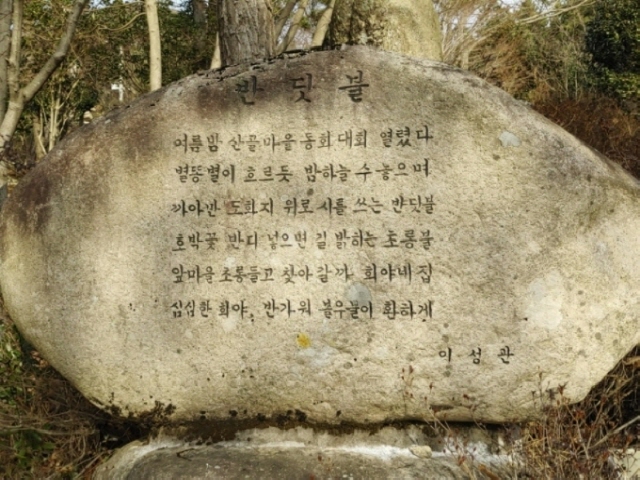 반 딧 불
여름밤 산골마을 동화대회 열렸다
별똥별이 흐르듯 밤하늘 수놓으며
까아만 도화지 위로 시를 쓰는 반딧불
호박꽃 반디 넣으면 길 밝히는 초롱불
앞마을 초롱들고 찾아갈까 희야네집
심심한 희야, 반가워 볼우물이 환하게
이 성 관